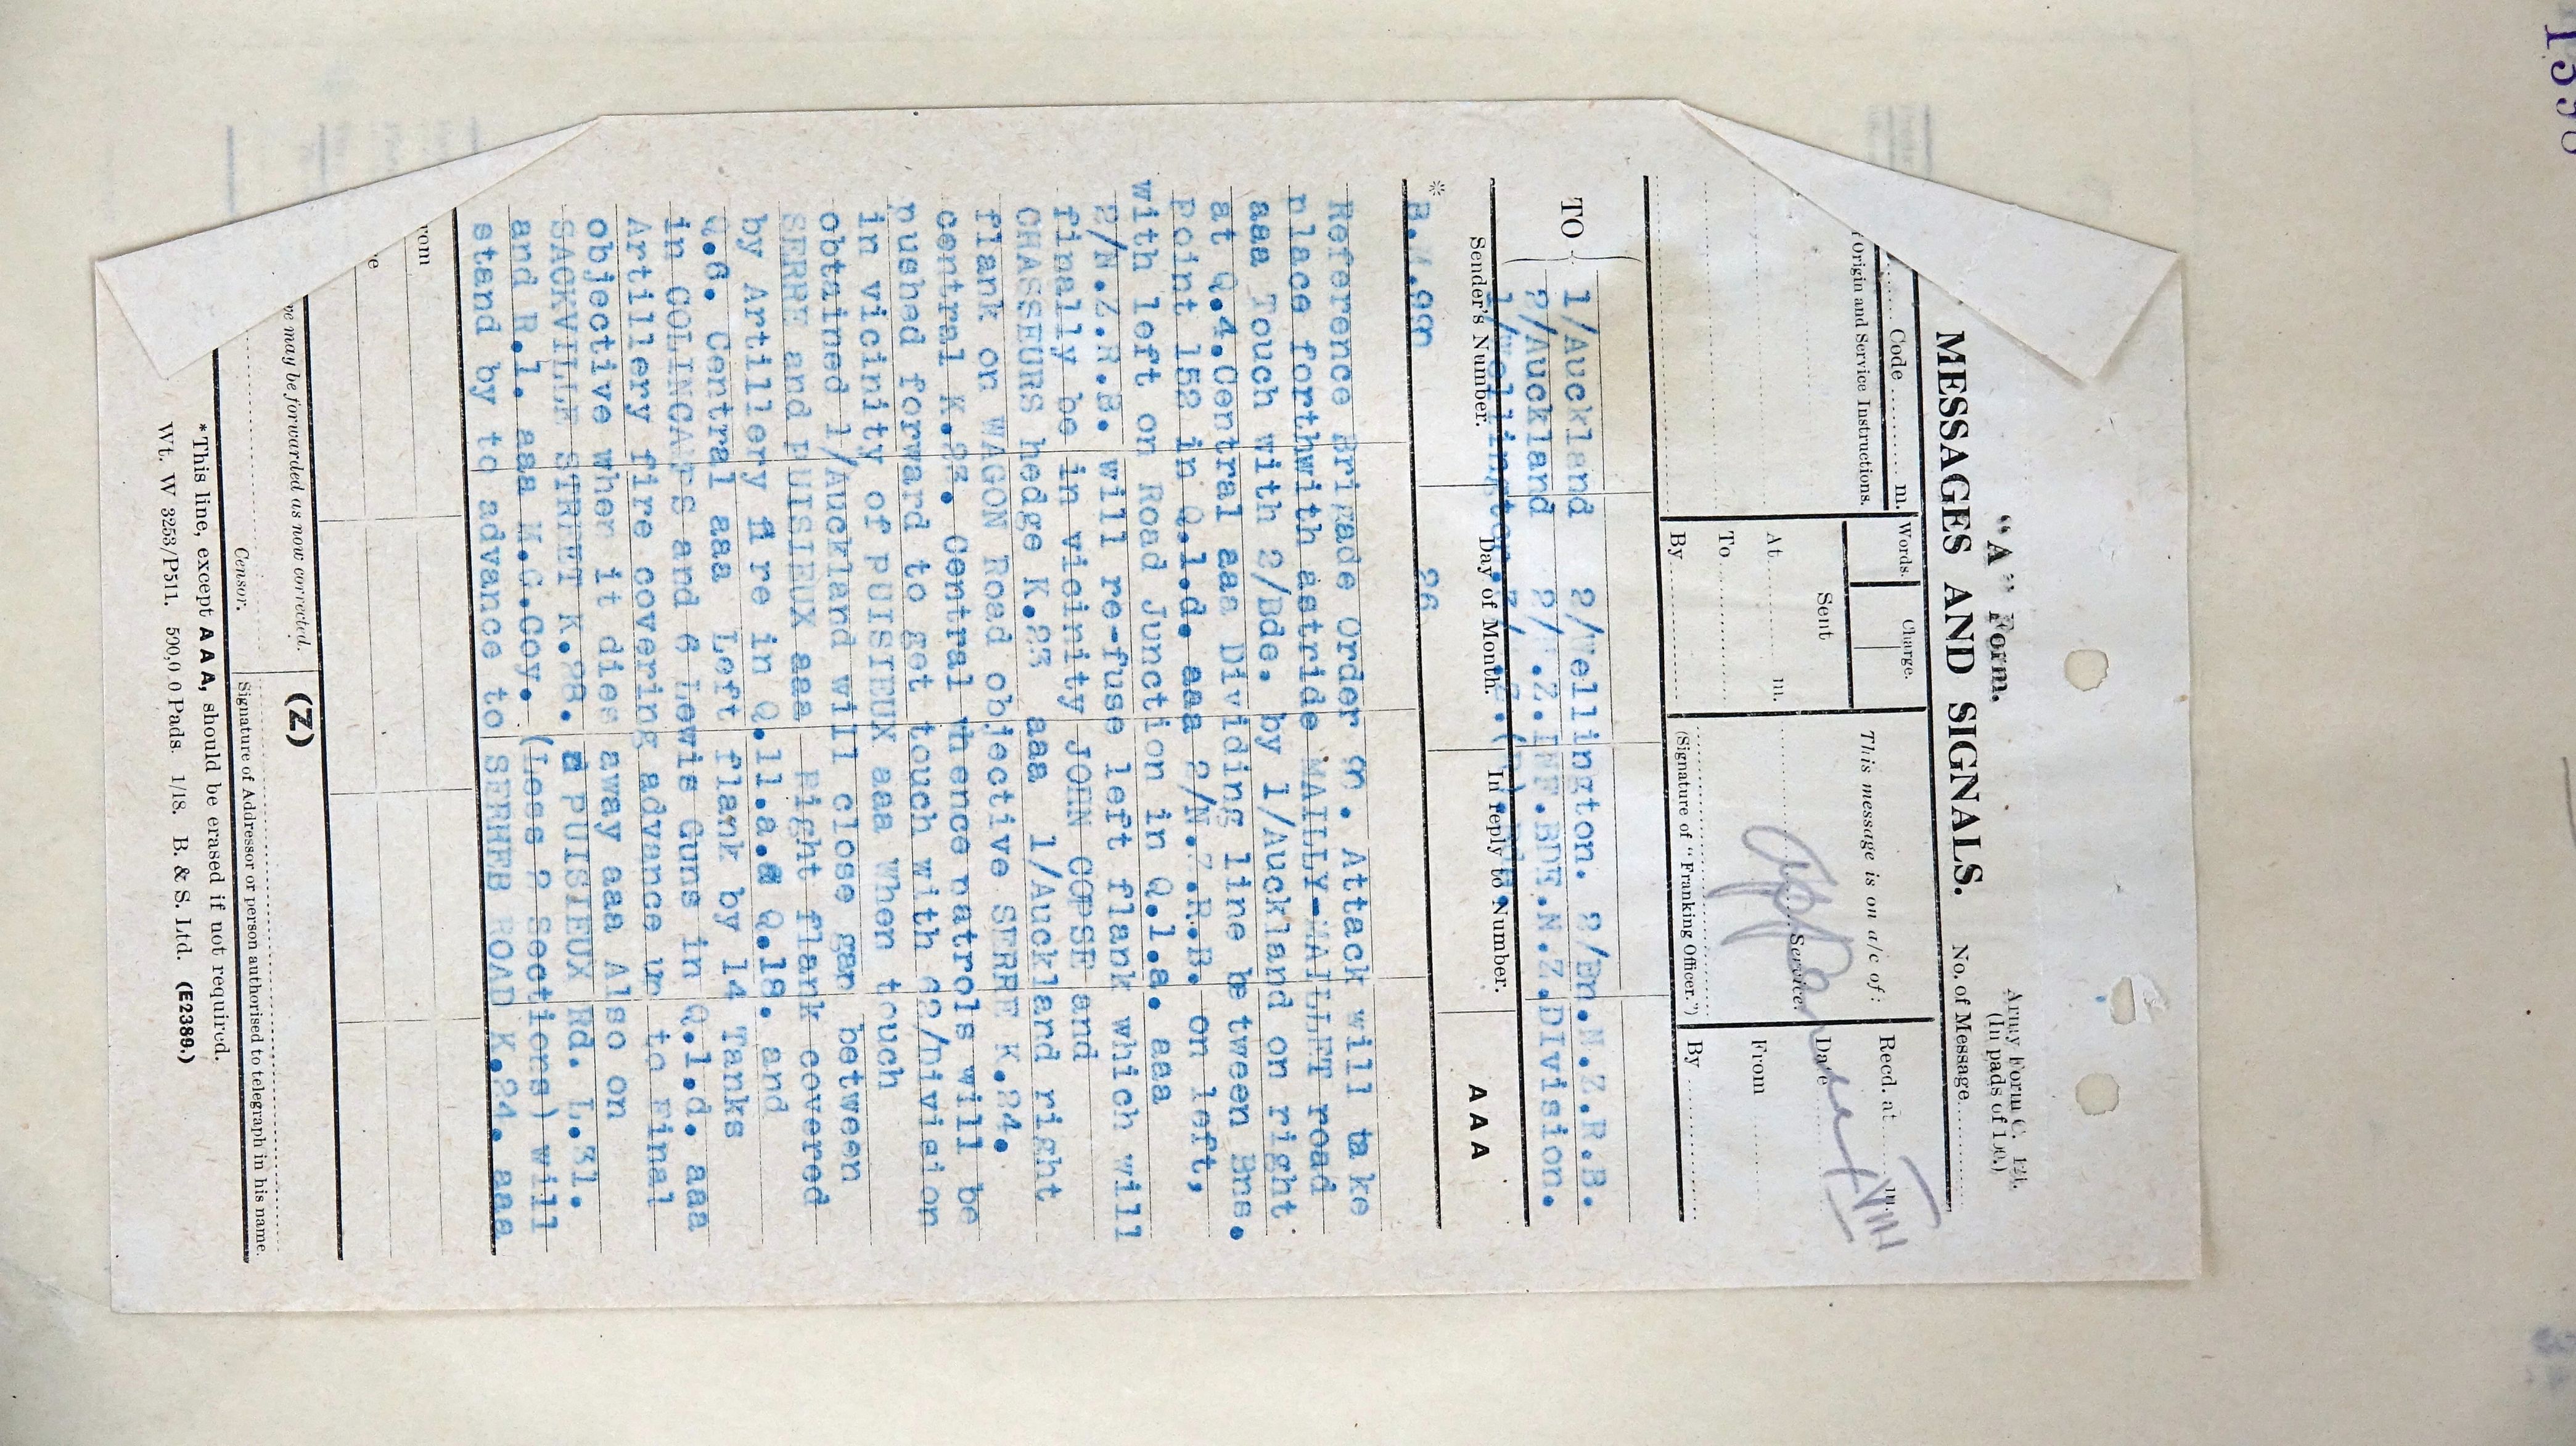 "A" Form.
Army Form C. 121.
MESSAGES AND SIGNALS.
(In pads of 100.)
No. of Message
Code m.
Words.
Charge.
This message is on a/c of:
Recd. at m.
Origin and Service Instructions.
Sent
Service.
Date
At m.
From
To
By
(Signature of "Franking Officer.")
By
Appendix VIII
TO
1/Auckland 2/Wellington. 2/Bn.N.Z.R.B.
2/Auckland 2/N.Z.INF.BDE.N.Z.DIvision.
1/Wellington.
Sender's Number.
Day of Month.
In reply to Number.
AAA
* B.M. 26
Reference Brigade Order . Attack will take
place forthwith astride MAILLY-MAILLET road
aaa Touch with 2/Bde. by 1/Auckland on right
at Q.4.Central aaa Dividing line between Bns.
Point 152 in Q.1.d. aaa 2/N.Z.R.B. on left,
with left on Road Junction in Q.1.a. aaa
2/N.Z.R.B. will re-fuse left flank which will
finally be in vicinity JOHN COPSE and
CHASSEURS hedge K.23 aaa 1/Auckland right
flank on WAGON Road objective SERRE K.24.
central K. Central whence patrols will be
pushed forward to get touch with 62/Division
in vicinity of PUISIEUX aaa When touch
obtained 1/Auckland will close gap between
SERRE and PUISIEUX aaa Right flank covered
by Artillery fire in Q.11.a.& Q.18. and
Q.6. Central aaa Left flank by 14 Tanks
in COLINCAMPS and 6 Lewis Guns in Q.1.d. aaa
Artillery fire covering advance up to Final
objective when it dies away aaa Also on
SACKVILLE STREET K.28. & PUISIEUX Rd. L.31.
and R.1. aaa M.G.Coy. (Less 2 Sections) will
stand by to advance to SERRE ROAD K.24. aaa
rom
e
ve may be forwarded as now corrected.
(Z)
Censor.
Signature of Addressor or person authorised to telegraph in his name.
*This line, except AAA, should be erased if not required.
Wt. W 3253/P511. 500,0 0 Pads. 1/18. B. & S. Ltd. (E2389.)